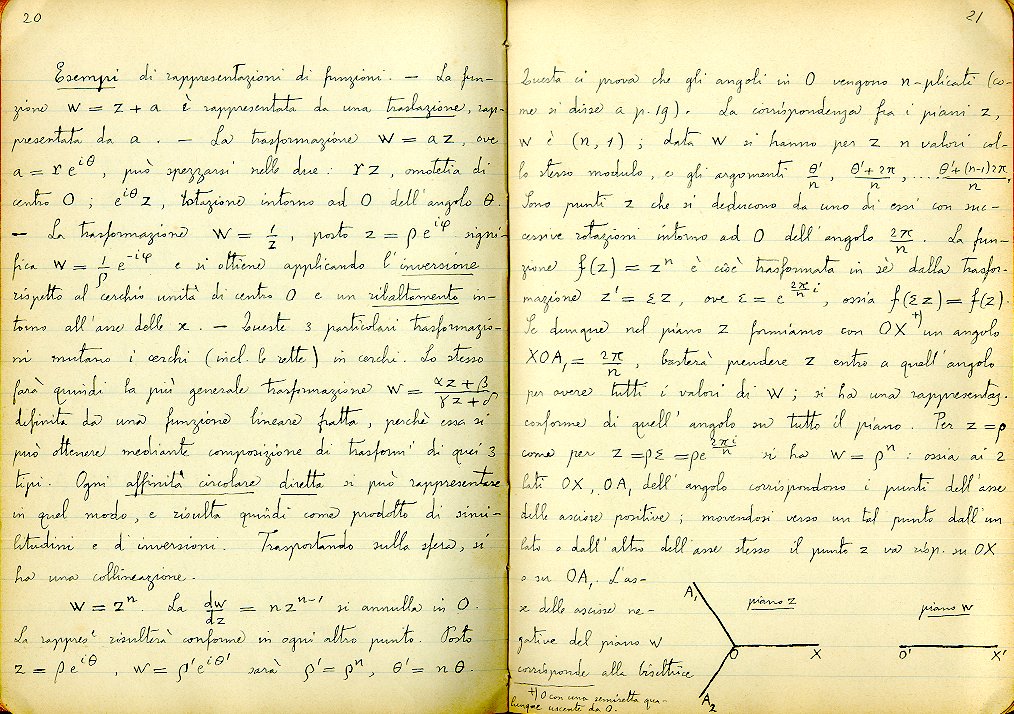 20
Esempi di rappresentazioni di funzioni. — La fun-
zione w = z + a è rappresentata da una traslazione, rap-
presentata da a. — La trasformazione w = az, ove
a = r e^{iθ}, può spezzarsi nelle due: rz, omotetia di
centro O; e^{iθ}z, rotazione intorno ad O dell'angolo θ.
— La trasformazione w = 1/z, posto z = ρe^{iφ} signi-
fica w = 1/ρ e^{-iφ} e si ottiene applicando l'inversione
rispetto al cerchio unità di centro O e un ribaltamento in-
torno all'asse delle x. — Queste 3 particolari trasformazio-
ni mutano i cerchi (incl. le rette) in cerchi. Lo stesso
farà quindi la più generale trasformazione w = (αz + β)/(γz + δ)
definita da una funzione lineare fratta, perchè essa si
può ottenere mediante composizione di trasform.i di quei 3
tipi. Ogni affinità circolare diretta si può rappresentare
in quel modo, e risulta quindi come prodotto di simi-
litudini e d'inversioni. Trasportando sulla sfera, si
ha una collineazione.
w = z^n. La dw/dz = nz^{n-1} si annulla in O.
La rappres.e risulterà conforme in ogni altro punto. Posto
z = ρe^{iθ}, w = ρ'e^{iθ'} sarà ρ' = ρ^n, θ' = nθ.
21
Questa ci prova che gli angoli in O vengono n-plicati (co-
me si disse a p. 19). La corrispondenza fra i piani z,
w è (n, 1); data w si hanno per z n valori col-
lo stesso modulo, e gli argomenti θ'/n, (θ'+2π)/n, .... (θ'+(n-1)2π)/n.
Sono punti z che si deducono da uno di essi con suc-
cessive rotazioni intorno ad O dell'angolo 2π/n. La fun-
zione f(z) = z^n è cioè trasformata in sè dalla trasfor-
mazione z' = εz, ove ε = e^{2π/n i}, ossia f(εz) = f(z).
Se dunque nel piano z formiamo con OX +) un angolo
XOA₁ = 2π/n, basterà prendere z entro a quell'angolo
per avere tutti i valori di w; si ha una rappresentaz.
conforme di quell'angolo su tutto il piano. Per z = ρ
come per z = ρε = ρe^{2πi/n} si ha w = ρ^n: ossia ai 2
lati OX, OA₁ dell'angolo corrispondono i punti dell'asse
delle ascisse positive; movendosi verso un tal punto dall'un
lato o dall'altro dell'asse stesso il punto z va risp. su OX
o su OA₁. L'as-
se delle ascisse ne-
gative del piano w
corrisponde alla bisettrice
+) O con una semiretta qua-
lunque uscente da O.
A₁
piano z
O
X
A₂
piano w
O'
X'